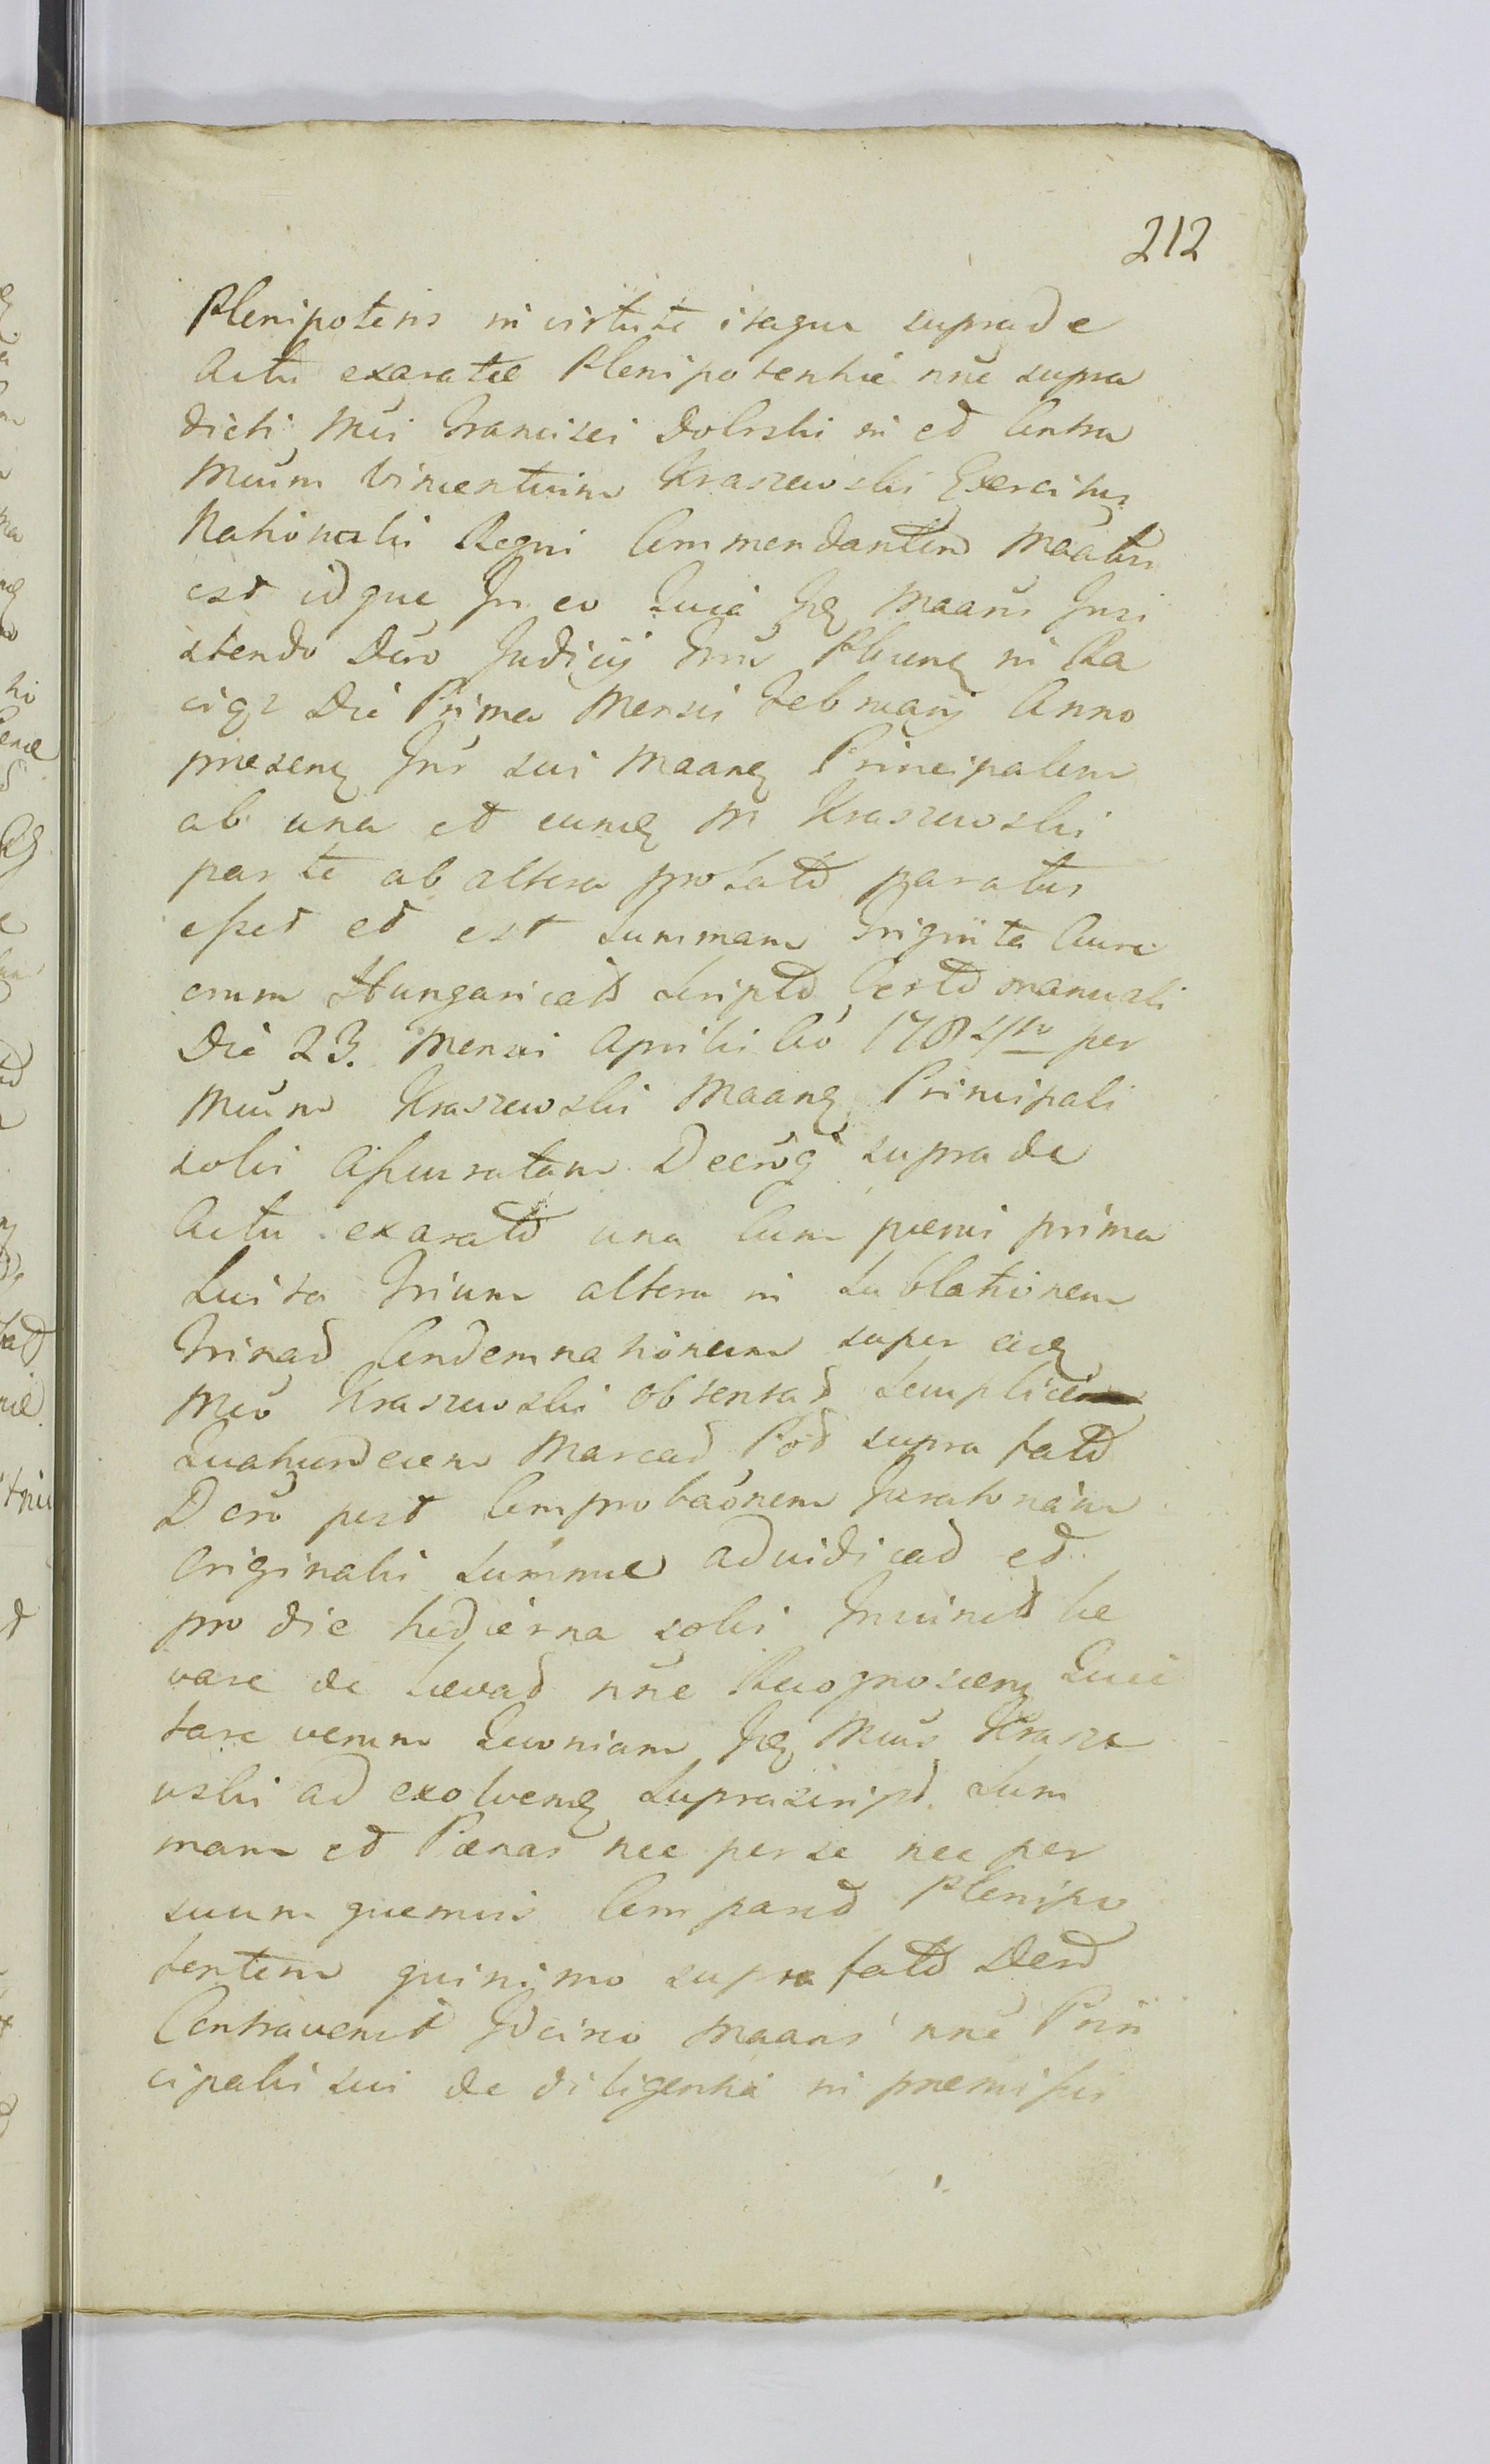 212
Plenipotens in virtute itaque supra de
Actu exaratæ Plenipotentiæ nñe supra
dicti Mci Francisci Dolski in et Contra
Mcum Vincentium Kraszewski Exercitus
Nationalis Regni Commendantem Maatus
est idque In eo Quia Maans Insi
stendo Dcro Judicij
Die Prima Mensis Februarij Anno
præsenq Inr sui Maanq Principalem
ab una et eumq M Kraszewski
parte ab altera prolato paratus
esset et est Summam Triginta Aure
orum Hungarical Script manuali
Die 23. Mensis Aprilis Ao 1784to per
Mcum Kraszewski Maanq Principali
solvi Assecuratam supra de
Actu exarato una Cum pænis prima
Luita Trium altera in Sublationem
Trinad Condemnationum super eodq
Mco Kraszewski obtentad
Quatuordecim Marcad Pod supra fato
Dcro post Comprobaonem Juratoriam
Originalis Summæ adiudicad et
pro die hodierna solvi Iniunctd le
vare de Levad nñe Recognoscenq Quie
tare verum Quoniam Mcus Krasze
wski ad exolvendq Suprascript. Sum
mam et Pænas nec per se nec per
suum quemvis Comparend Plenipo
tentem quinimo supra fato
Contravenit Idcirco Maans nñe Prin
cipalis sui de diligentia in præmissis